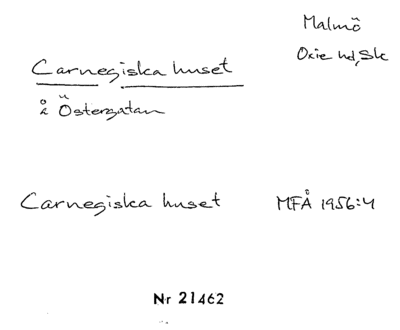 Malmö
Oxie hd, Sk
Carnegiska huset
å Östergatan
Carnegiska huset MFÅ 1956:4
Nr 21462